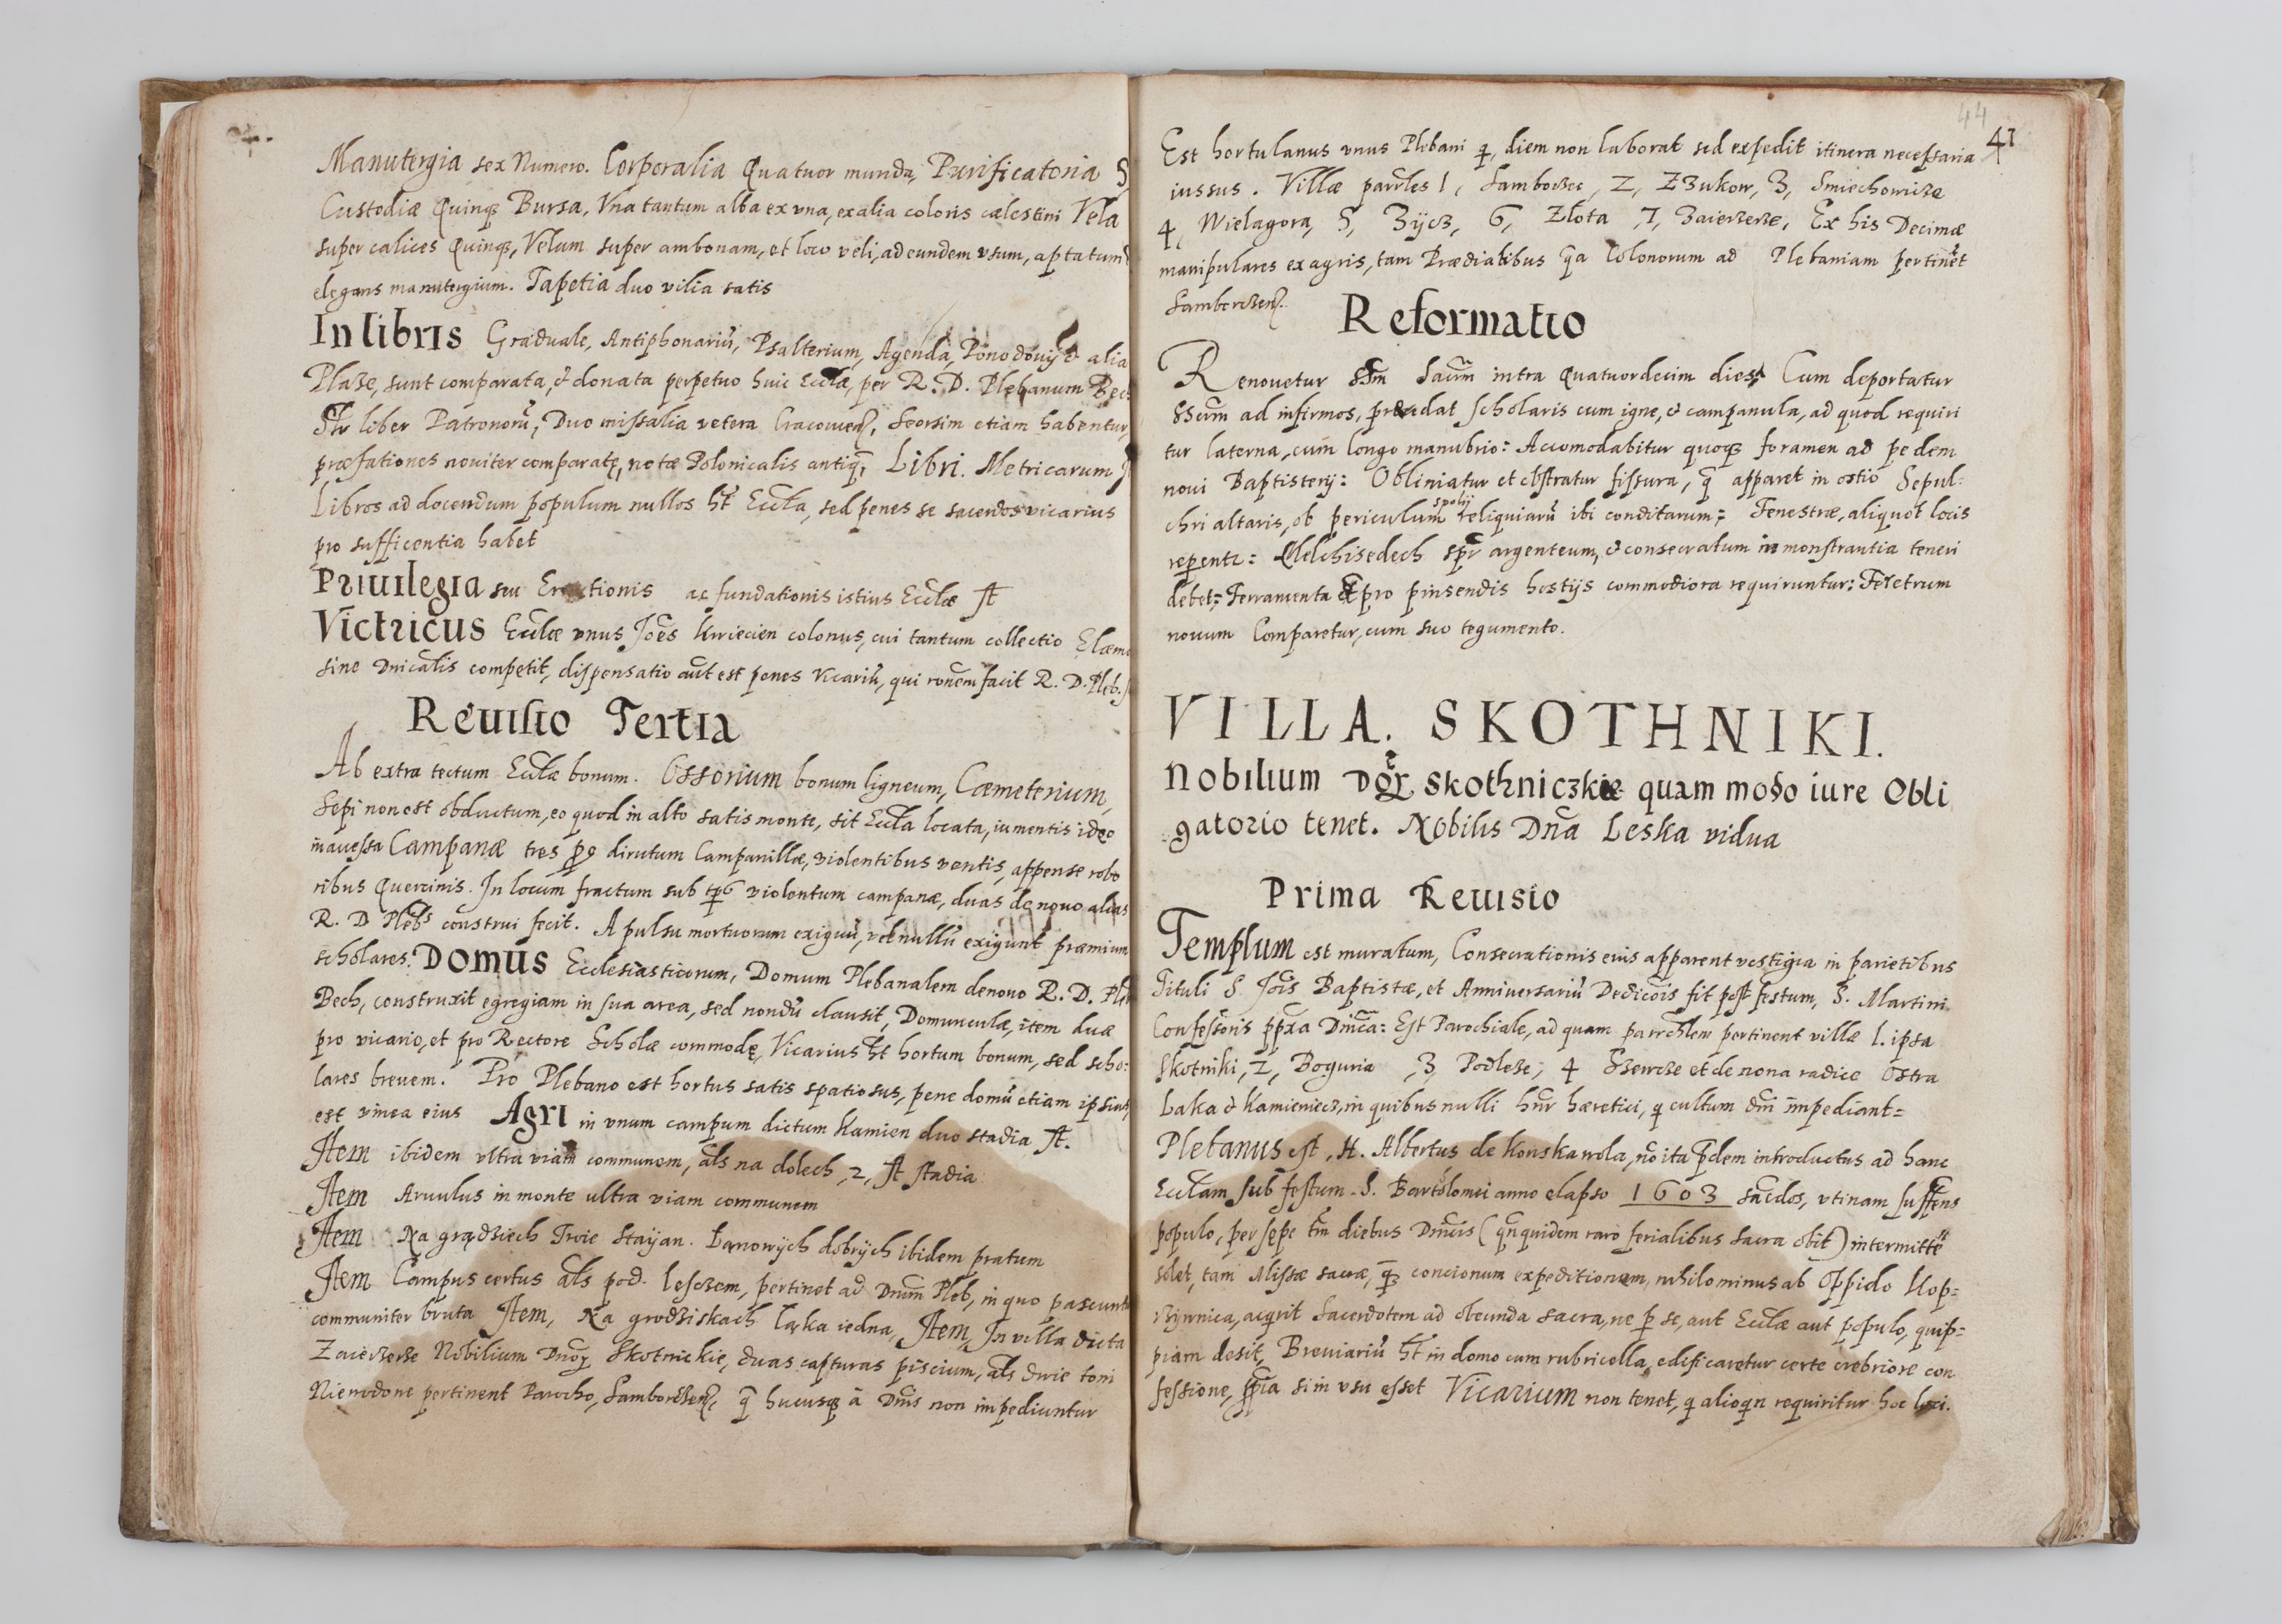 Manutergia sex Numero. Corporalia Quatuor munda, Purificatoria 5
Custodiæ Quinq; Bursa, Vna tantum alba ex vna, ex alia coloris cælestini Vela
super calices Quinq;, Velum super ambonam, et loco veli, ad eundem vsum, aptatum
elegans manutergium. Tapetia duo vilia satis
In libris Graduale, Antiphonariũ, Psalterium, Agenda, & alia
sunt comparata, & donata perpetuo huic Eccłæ, per R. D. Plebanum
liber Patronorũ, Duo missalia vetera Seorsim etiam habentur,
præfationes nouiter comparatę, notæ Polonicalis Libri. Metricarum
Libros ad docendum populum nullos ht Eccła, sed penes se sacerdos vicarius
pro sufficentia habet
Priuilegia seu Erectionis ac fundationis istius Eccłæ
Victricus Eccłæ vnus Joẽs Kwiecien colonus, cui tantum collectio
sine Dnicalis competit, dispensatio aut est penes Vicariũ, qui ronem facit R. D. Pleb.
Reuisio Tertia
Ab extra tectum Eccłæ bonum. Ossorium bonum ligneum, Cæmeterium,
Sepi non est obductum, eo quod in alto satis monte, sit Eccła locata, iumentis ideo
inauessa Campanæ tres dirutum Campanillæ, violentibus ventis, appense robo
ribus Quercinis. In locum fractum sub violentum campanæ, duas de nouo alias
R. D Plebs construi fecit. A pulsu mortuorum exiguũ, vel nullũ exigunt præmium
scholares. Domus Ecclesiasticorum, Domum Plebanalem denouo R. D.
Bech, construxit egregiam in sua area, sed nondũ clausit, Domunculæ, item duæ
pro vicario, et pro Rectore Scholæ commodę, Vicarius ht hortum bonum, sed scho:
lares breuem. Pro Plebano est hortus satis spatiosus, pene domũ etiam ipsius,
est vinea eius Agri in vnum campum dictum Kamien duo stadia
Item ibidem vltra viam communem, als na dolech, 2, stadia
Item Aruulus in monte ultra viam communem
Item Na grądziech Troie Stayan. Łanowych dobrych ibidem pratum
Item Campus certus als pod lesczem, pertinet ad Dnum Pleb, in quo pascunt
communiter bruta Item, Na grodziskach Łąka iedna, Item, In villa dicta
Zaierzerze Nobilium Dnor Skotnickie, duas capturas piscium, als dwie toni
Niewodone pertinent Parocho, q hucusq; à Dnis non impediuntur
44
41
Est hortulanus vnus Plebani q, diem non laborat sed expedit itinera necessaria
iussus. Villæ 1, Samborzec, 2, Zzukow, 3, Smiechowicze
4, Wielagora, 5, Zÿcz, 6, Złota, 7, Zaierzerze, Ex his Decimæ
manipulares ex agris, tam Prædialibus Colonorum ad Plebaniam pertinet
Reformatio
Renouetur SSm Sacm intra Quatuordecim dies. Cum deportatur
SScm ad infirmos, præcedat scholaris cum igne, & campanula, ad quod requiri
tur laterna, cum longo manubrio: Accomodabitur quoq; foramen ad pedem
noui Baptisterij: Obliniatur et obstratur fissura, q apparet in ostio Sepul:
chri altaris, ob periculum spolij reliquiarũ ibi conditarum: Fenestræ, aliquot locis
Melchisedech argenteum, & consecratum in monstrantia teneri
debet: Ferramenta pro pinsendis hostijs commodiora requiruntur: Feretrum
nouum Comparetur, cum suo tegumento.
VILLA. SKOTHNIKI.
Nobilium Skothniczkie quam modo iure Obli
gatorio tenet. Nobilis Dna Leska vidua
Prima Reuisio
Templum est muratum, Consecrationis eius apparent vestigia in parietibus
Tituli S. Jois Baptistæ, et Anniversariũ Dedicois fit post festum, S. Martini
Confessoris Dnica: Est Parochiale, ad quam pertinent villæ 1. ipsa
Skotniki, 2, Boguria, 3, Podleze, 4 et de nona radice Ostro
Łaka & Kamieniecz, in quibus nulli hnr hæretici, q cultum impediant=
Plebanus est, H. Albertus de Konskawola, no ita introductus ad hanc
Ecclam sub festum. S. Bartolomei anno elapso 1603 utinam
populo, per sepe tm diebus Dnicis (qnquidem raro ferialibus sacra obit) intermitte
solet, tam Missæ sacræ, concionum expeditionem, nihilominus ab Oppido Kop=
rzywnica, acqrit Sacerdotem ad obeunda sacra, ne p se, aut Ecclæ aut populo, quip=
piam desit, Breviariũ ht in domo cum rubricella, edificaretur certe crebriore con
fessione, si in vsu esset Vicarium non tenet, q alioqn requiritur hoc loci.